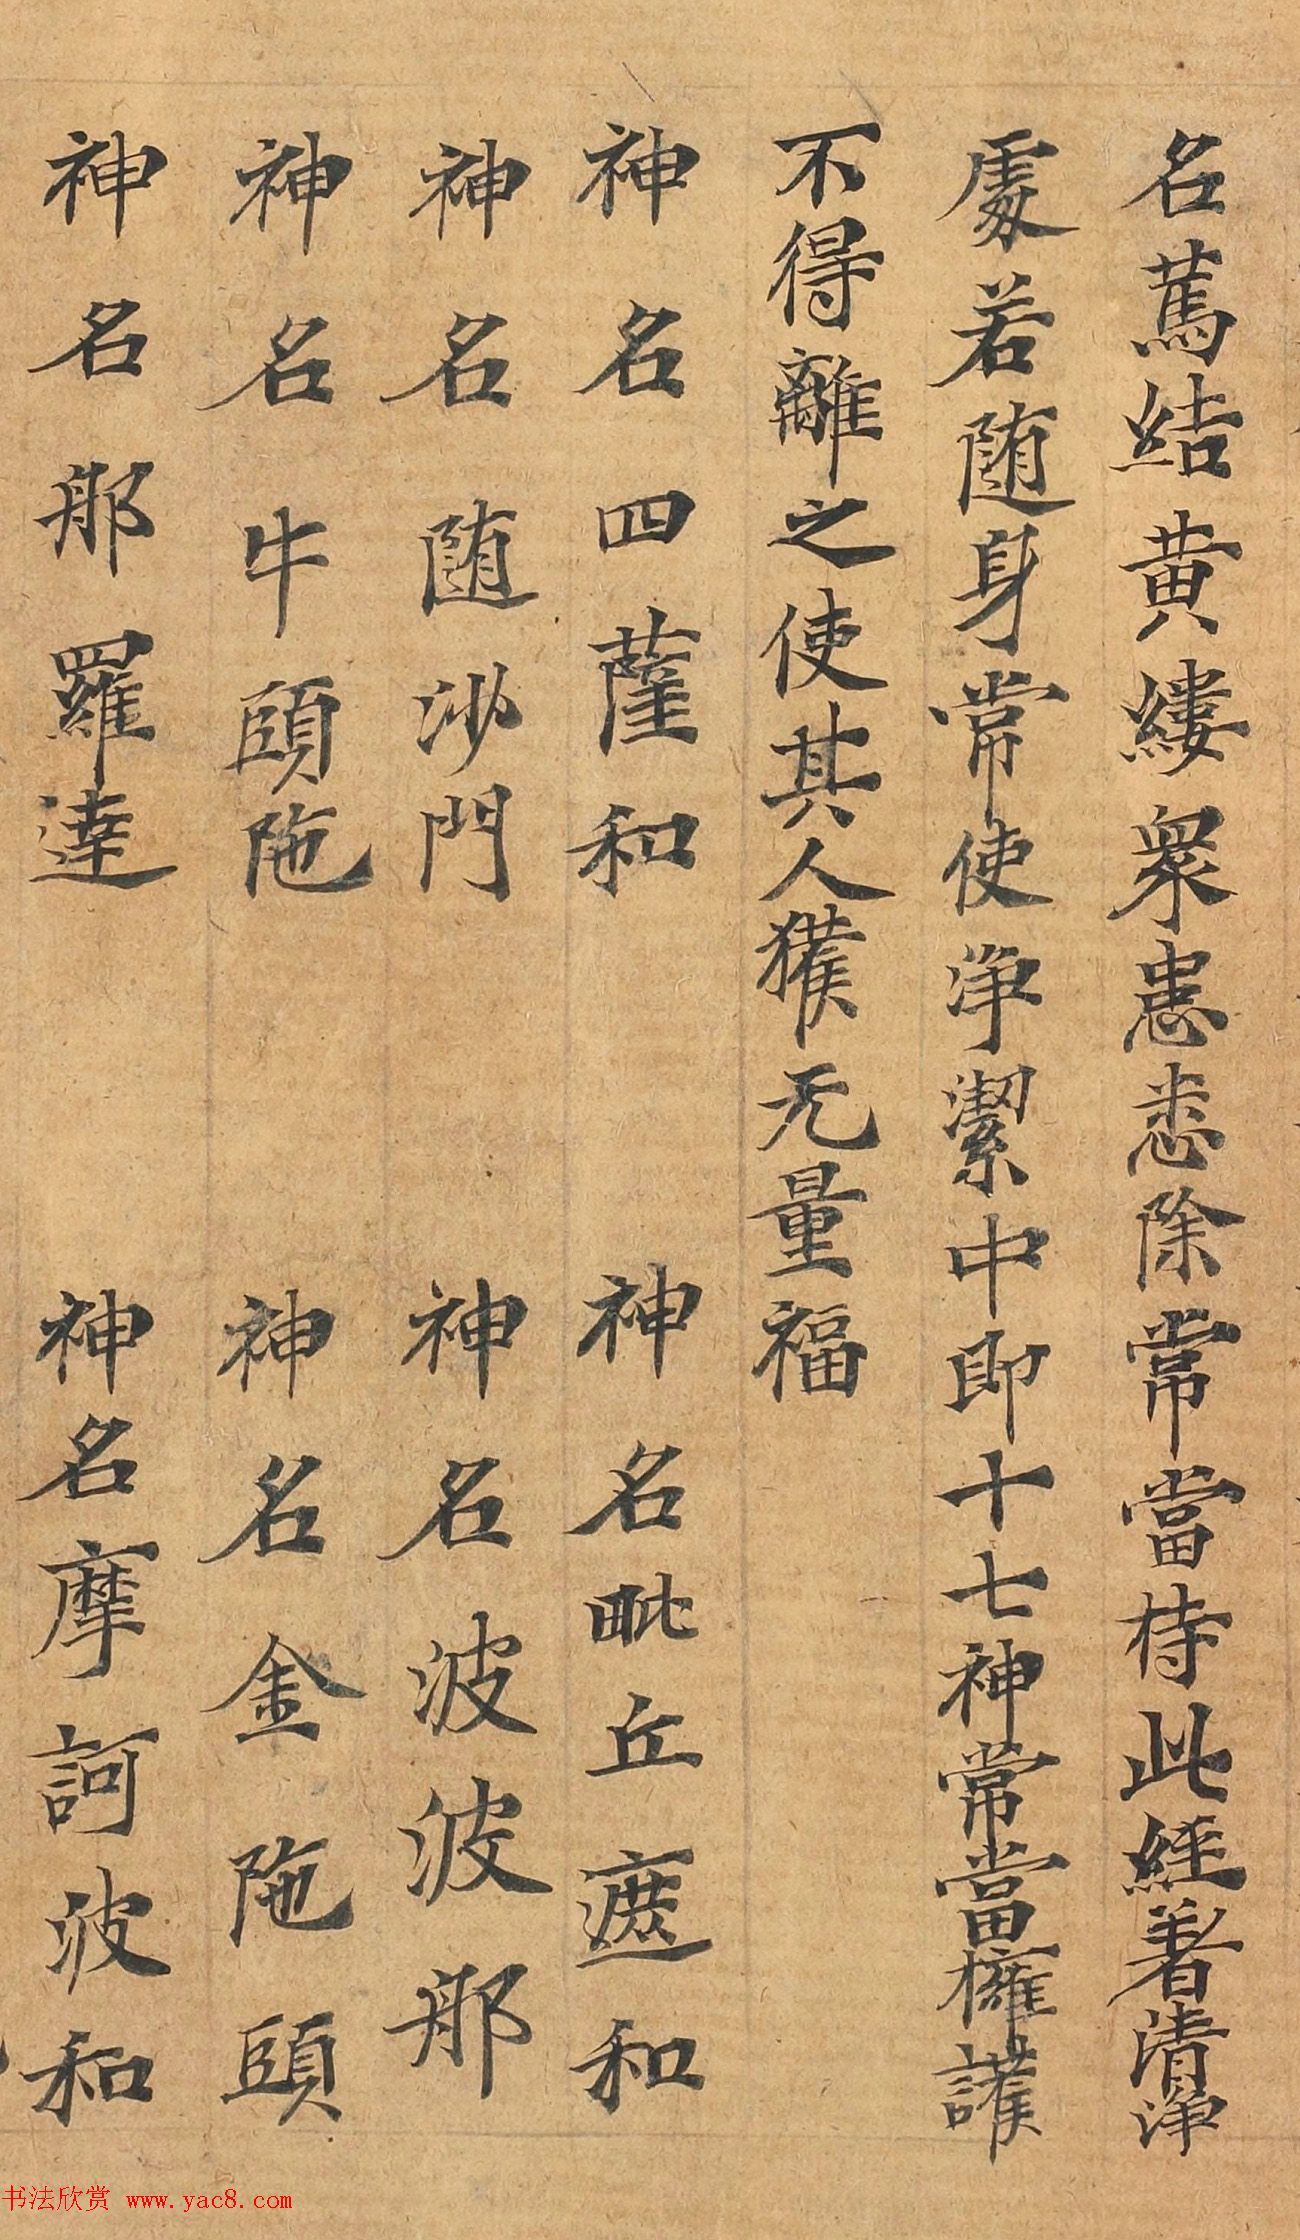 名萬結黄縷衆患悉除常當持此經著清淨
處若随身常使淨潔中即十七神常當擁護
不得離之使其人獲无量福
神名四薩和 神名毗丘遮和
神名随沙門 神名波波那
神名牛頭陁 神名金陁頭
神名那羅達 神名摩訶波和
书法欣赏 www.yac8.com